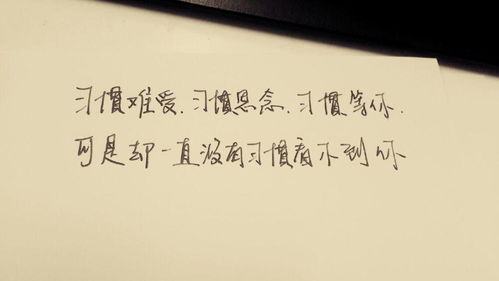 习慣难受.习慣思念.习慣等你.
可是却一直没有习慣看不到你